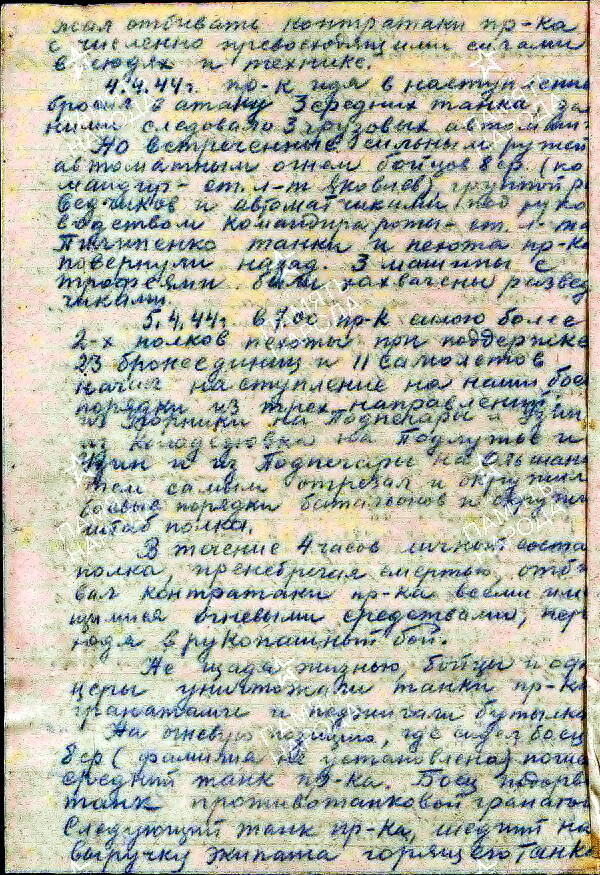 жал отбивать контратаки пр-ка
с численно превосходящими силами
в людях и технике.
4.4.44г. пр-к идя в наступление
бросил в атаку 3 средних танка, за
ними следовало 3 грузовых автомаши
Но встреченные сильным ружей
автоматным огнем бойцов 8 ср (ко
мандир - ст. л-т Яковлев), группой ра
ведчиков и автоматчиками под руко
водством командира роты - ст. л-та
танки и пехота пр-ка
повернули назад. 3 машины с
трофеями были захвачены развед
чиками.
5.4.44г. в 7.00 пр-к силою более
2-х полков пехоты при поддержке
23 бронеединиц и 11 самолетов
начал наступление на наши бое
порядки из трех направлений:
из на Подпечары и
из Колодзеювка на Подлужье и
и из Подпечары на
тем самым отрезал и окружил
боевые порядки батальонов и окружи
штаб полка.
В течение 4 часов личный соста
полка, пренебрегая смертью, отби
вал контратаки пр-ка всеми име
щимися огневыми средствами, пере
ходя в рукопашный бой.
Не щадя жизнью, бойцы и офи
церы уничтожали танки пр-ка
гранатами и поджигали бутылка
На огневую позицию, где сидел боец
8 ср (фамилия не установлена) пошел
средний танк пр-ка. Боец подорва
танк противотанковой гранатой
Следующий танк пр-ка, шедший на
выручку экипажа горящего танка